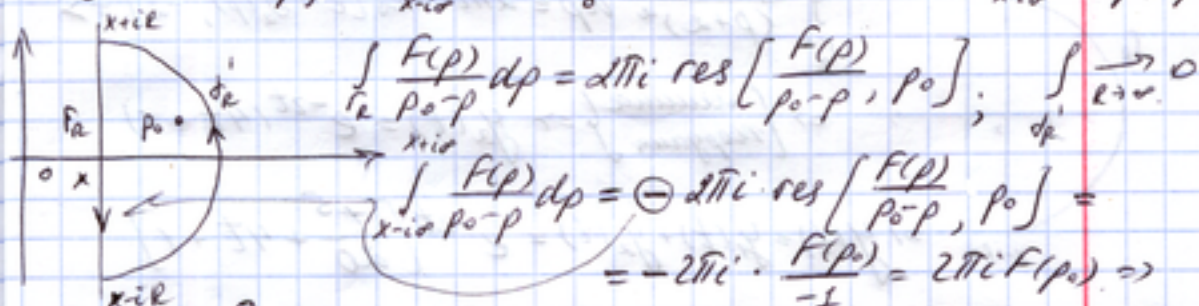 x+iR
Γ_R γ'_R p₀
0 x
x-iR
∫_{Γ_R} F(p)/(p₀-p) dp = 2πi res[F(p)/(p₀-p), p₀]; ∫_{γ'_R} →_{R→∞} 0
∫_{x-i∞}^{x+i∞} F(p)/(p₀-p) dp = ⊖ 2πi · res[F(p)/(p₀-p), p₀] =
= -2πi · F(p₀)/-1 = 2πi F(p₀) =>